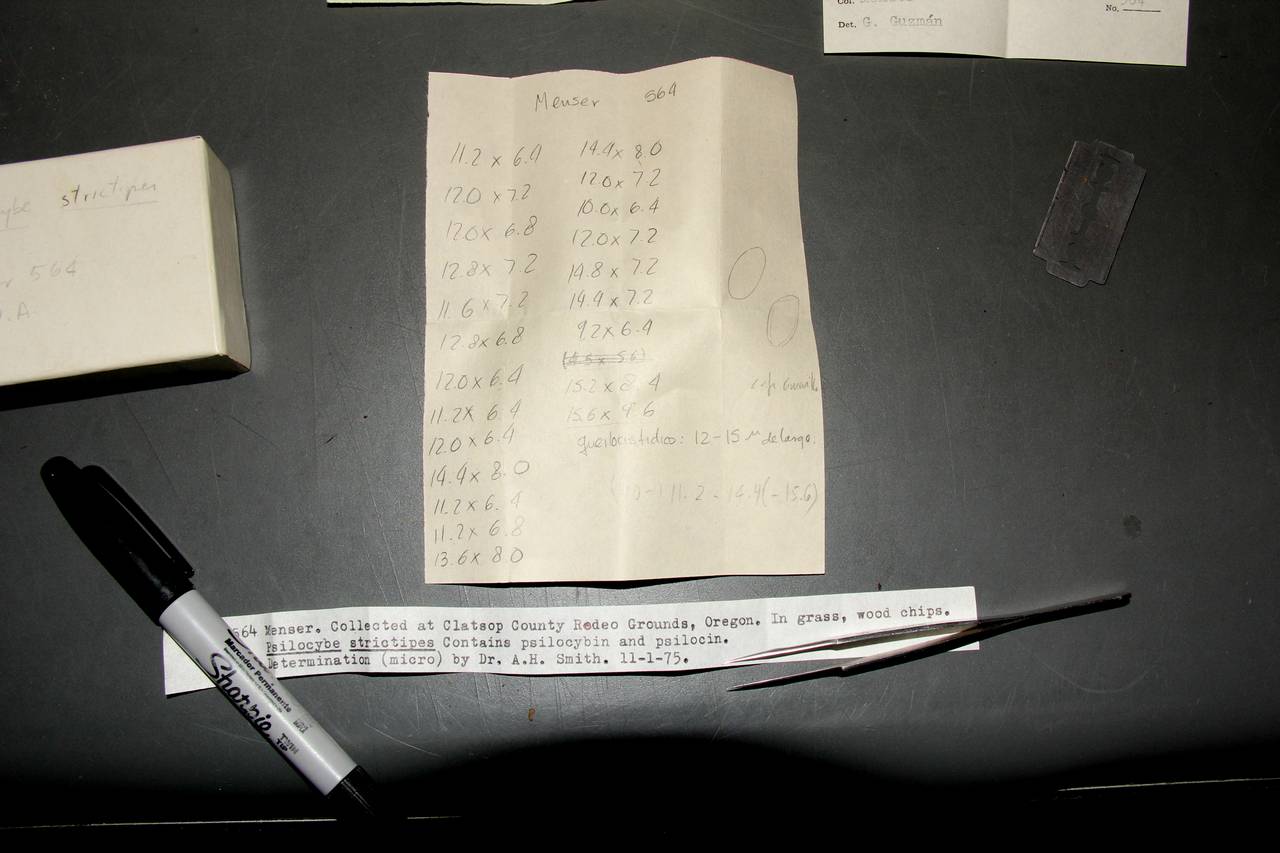 Det. G. Guzmán
No.
Menser 564
11.2 x 6.4
12.0 x 7.2
12.0 x 6.8
12.8 x 7.2
11.6 x 7.2
12.8 x 6.8
12.0 x 6.4
11.2 x 6.4
12.0 x 6.4
14.4 x 8.0
11.2 x 6.4
11.2 x 6.8
13.6 x 8.0
14.4 x 8.0
12.0 x 7.2
10.0 x 6.4
12.0 x 7.2
14.8 x 7.2
14.4 x 7.2
9.2 x 6.4
15.2 x 8.4
15.6 x 9.6
queilocistidios: 12-15 µ de largo.
11.2 - 14.4 (-15.6)
strictipes
564
.A.
564 Menser. Collected at Clatsop County Rodeo Grounds, Oregon. In grass, wood chips.
Psilocybe strictipes Contains psilocybin and psilocin.
Determination (micro) by Dr. A.H. Smith. 11-1-75.
Marcador Permanente
Sharpie
TWIN
TIP